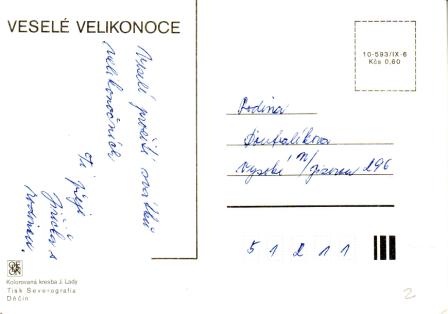 VESELÉ VELIKONOCE
10-593/IX-6
Kčs 0,60
Veselé prožití svátků
velikonočních
Vá přeje
Jiřička s
rodinou.
Rodina
Doubalíkova
Vysoké n/Jizerou 296
5 1 2 1 1
Kolorovaná kresba J. Lady
Tisk Severografia
Děčín
2